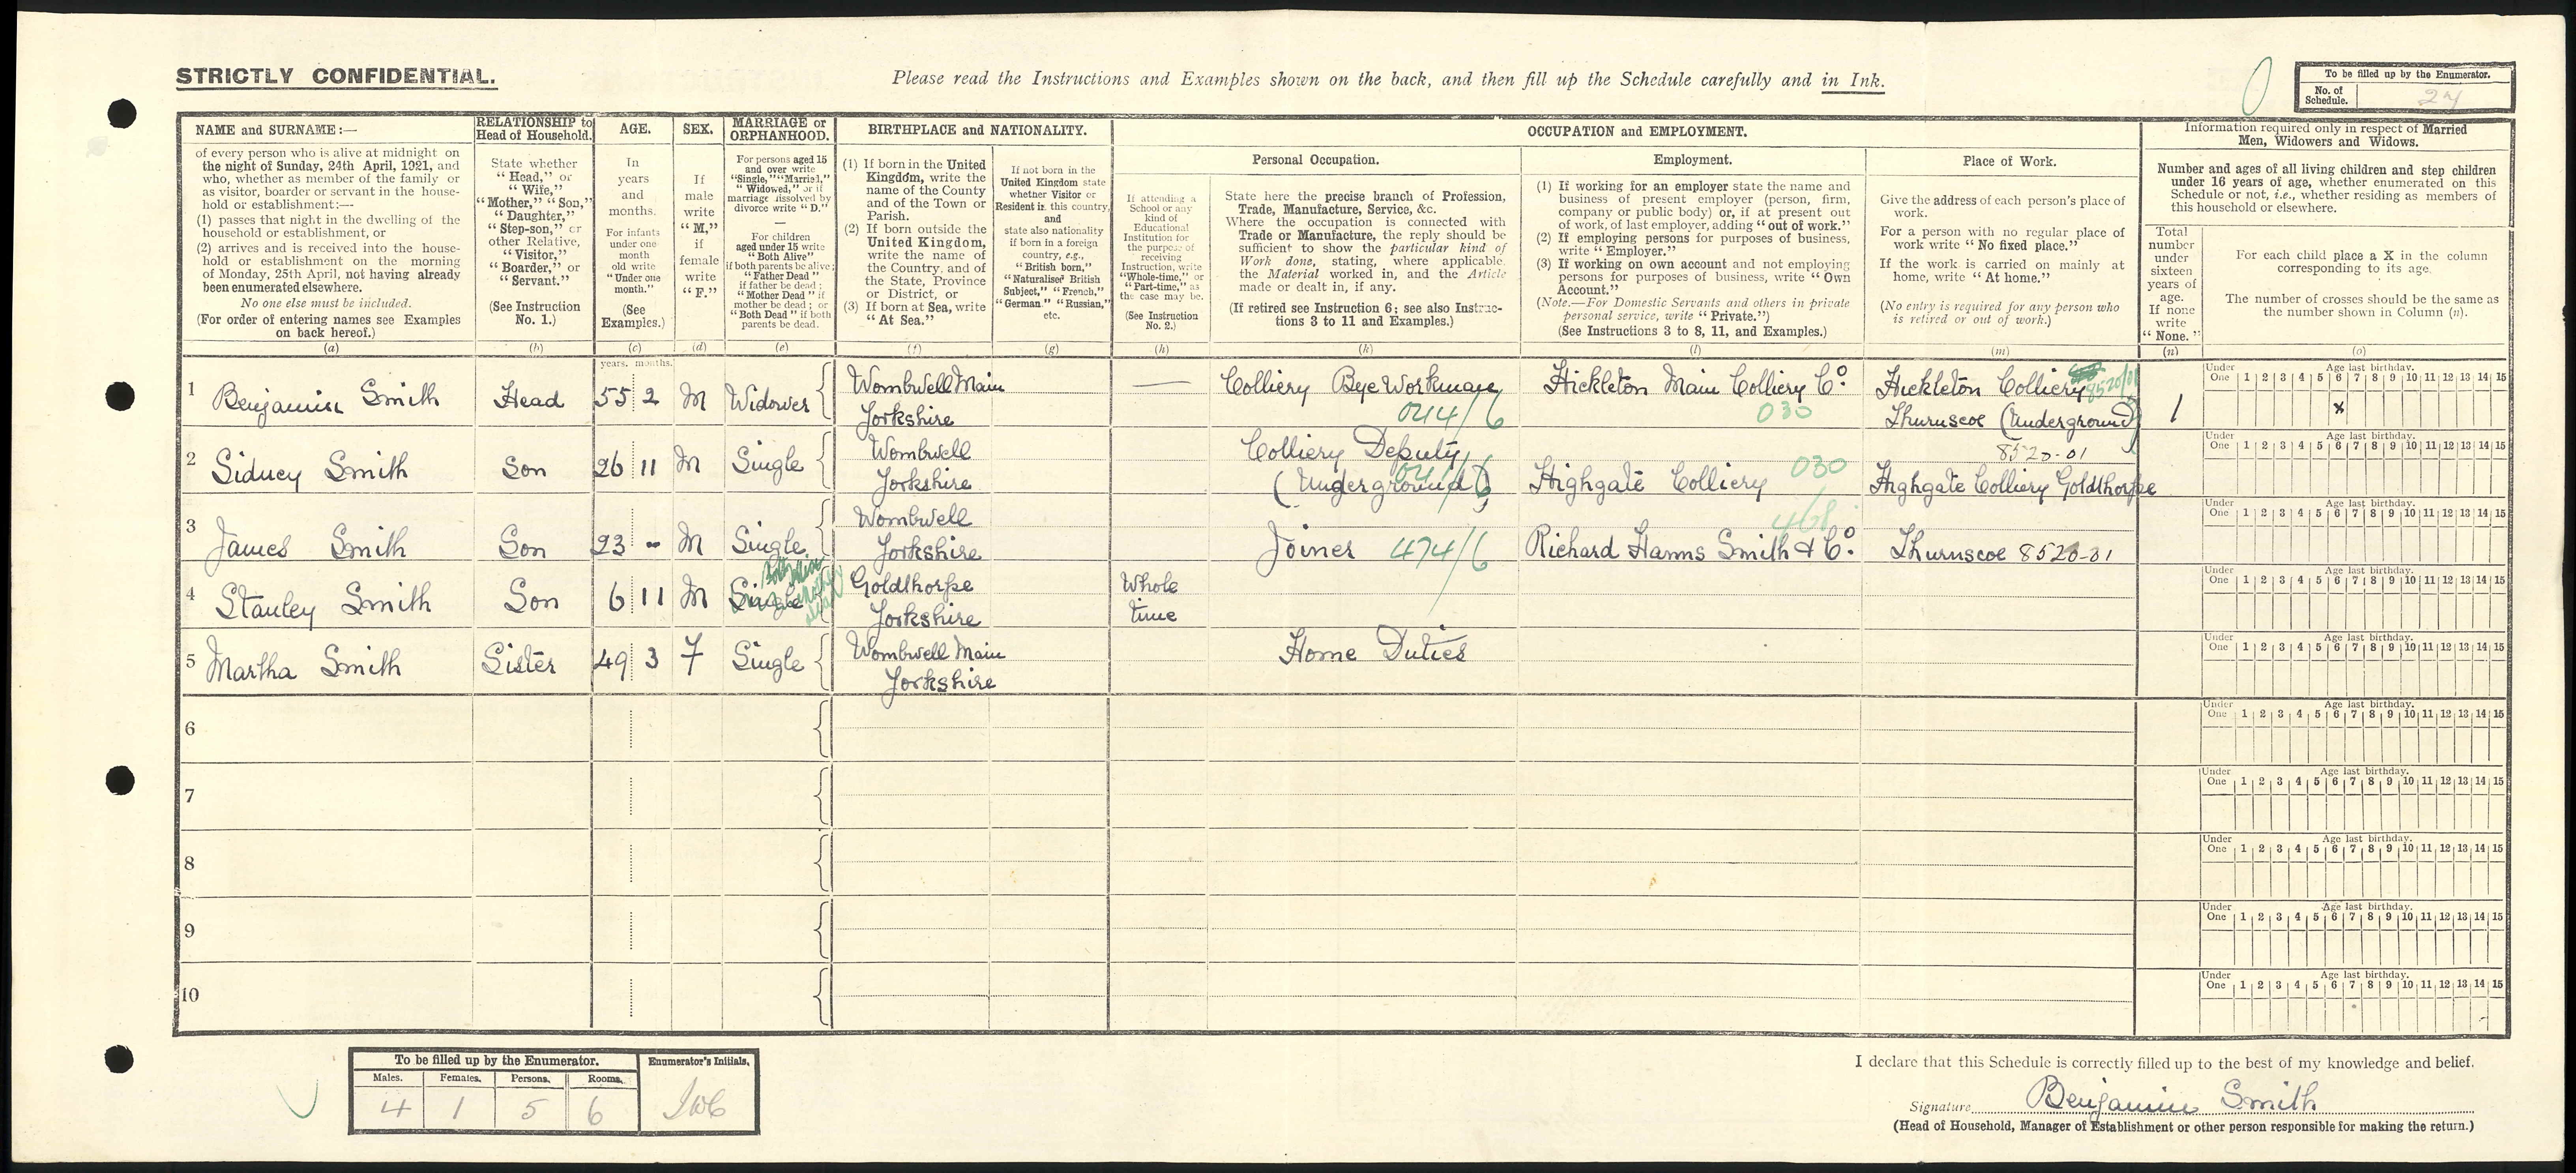 STRICTLY CONFIDENTIAL.
Please read the Instructions and Examples shown on the back, and then fill up the Schedule carefully and in Ink.
To be filled up by the Enumerator.
No. of Schedule. 27
NAME and SURNAME:—
of every person who is alive at midnight on
the night of Sunday, 24th April, 1921, and
who, whether as member of the family or
as visitor, boarder or servant in the house-
hold or establishment:—
(1) passes that night in the dwelling of the
household or establishment, or
(2) arrives and is received into the house-
hold or establishment on the morning
of Monday, 25th April, not having already
been enumerated elsewhere.
No one else must be included.
(For order of entering names see Examples
on back hereof.)
(a)
RELATIONSHIP to
Head of Household.
State whether
"Head," or
"Wife,"
"Mother," "Son,"
"Daughter,"
"Step-son," or
other Relative,
"Visitor,"
"Boarder," or
"Servant."
(See Instruction
No. 1.)
(b)
AGE.
In
years
and
months.
For infants
under one
month
old write
"Under one
month."
(See
Examples.)
(c)
SEX.
If
male
write
"M,"
if
female
write
"F."
(d)
MARRIAGE or
ORPHANHOOD.
For persons aged 15
and over write
"Single," "Married,"
"Widowed," or if
marriage dissolved by
divorce write "D."
—
For children
aged under 15 write
"Both Alive"
if both parents be alive;
"Father Dead"
if father be dead;
"Mother Dead" if
mother be dead; or
"Both Dead" if both
parents be dead.
(e)
BIRTHPLACE and NATIONALITY.
(1) If born in the United
Kingdom, write the
name of the County
and of the Town or
Parish.
(2) If born outside the
United Kingdom,
write the name of
the Country, and of
the State, Province
or District, or
(3) If born at Sea, write
"At Sea."
(f)
If not born in the
United Kingdom state
whether Visitor or
Resident in this country,
and
state also nationality
if born in a foreign
country, e.g.,
"British born,"
"Naturalised British
Subject," "French,"
"German." "Russian,"
etc.
(g)
OCCUPATION and EMPLOYMENT.
If attending a
School or any
kind of
Educational
Institution for
the purpose of
receiving
Instruction, write
"Whole-time," or
"Part-time," as
the case may be.
(See Instruction
No. 2.)
(h)
Personal Occupation.
State here the precise branch of Profession,
Trade, Manufacture, Service, &c.
Where the occupation is connected with
Trade or Manufacture, the reply should be
sufficient to show the particular kind of
Work done, stating, where applicable,
the Material worked in, and the Article
made or dealt in, if any.
(If retired see Instruction 6; see also Instruc-
tions 3 to 11 and Examples.)
(k)
Employment.
(1) If working for an employer state the name and
business of present employer (person, firm,
company or public body) or, if at present out
of work, of last employer, adding "out of work."
(2) If employing persons for purposes of business,
write "Employer."
(3) If working on own account and not employing
persons for purposes of business, write "Own
Account."
(Note.—For Domestic Servants and others in private
personal service, write "Private.")
(See Instructions 3 to 8, 11, and Examples.)
(l)
Place of Work.
Give the address of each person's place of
work.
For a person with no regular place of
work write "No fixed place."
If the work is carried on mainly at
home, write "At home."
(No entry is required for any person who
is retired or out of work.)
(m)
Information required only in respect of Married
Men, Widowers and Widows.
Number and ages of all living children and step children
under 16 years of age, whether enumerated on this
Schedule or not, i.e., whether residing as members of
this household or elsewhere.
Total
number
under
sixteen
years of
age.
If none
write
"None."
(n)
For each child place a X in the column
corresponding to its age.
The number of crosses should be the same as
the number shown in Column (n).
(o)
years. months.
1 Benjamin Smith Head 55 2 M Widower Wombwell Main Yorkshire — Colliery Bye Workman 044/6 Hickleton Main Colliery Co. 030 Hickleton Colliery Thurnscoe (Underground) 8520/01 1 x
Under One 1 2 3 4 5 6 7 8 9 10 11 12 13 14 15 Age last birthday.
2 Sidney Smith Son 26 11 M Single Wombwell Yorkshire Colliery Deputy (Underground) Highgate Colliery 030 8520-01 Highgate Colliery Goldthorpe
Under One 1 2 3 4 5 6 7 8 9 10 11 12 13 14 15 Age last birthday.
3 James Smith Son 23 - M Single Wombwell Yorkshire Joiner 474/6 Richard Harms Smith & Co. 468 Thurnscoe 8520-01
Under One 1 2 3 4 5 6 7 8 9 10 11 12 13 14 15 Age last birthday.
4 Stanley Smith Son 6 11 M Single Goldthorpe Yorkshire Whole time
Under One 1 2 3 4 5 6 7 8 9 10 11 12 13 14 15 Age last birthday.
5 Martha Smith Sister 49 3 F Single Wombwell Main Yorkshire Home Duties
Under One 1 2 3 4 5 6 7 8 9 10 11 12 13 14 15 Age last birthday.
6
Under One 1 2 3 4 5 6 7 8 9 10 11 12 13 14 15 Age last birthday.
7
Under One 1 2 3 4 5 6 7 8 9 10 11 12 13 14 15 Age last birthday.
8
Under One 1 2 3 4 5 6 7 8 9 10 11 12 13 14 15 Age last birthday.
9
Under One 1 2 3 4 5 6 7 8 9 10 11 12 13 14 15 Age last birthday.
10
Under One 1 2 3 4 5 6 7 8 9 10 11 12 13 14 15 Age last birthday.
To be filled up by the Enumerator.
Enumerator's Initials.
Males. Females. Persons. Rooms.
4 1 5 6
I declare that this Schedule is correctly filled up to the best of my knowledge and belief.
Signature Benjamin Smith
(Head of Household, Manager of Establishment or other person responsible for making the return.)